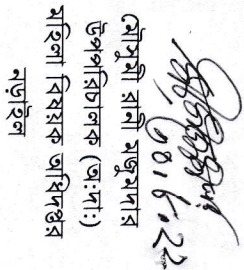 মৌসুমী রানী মজুমদার
উপপরিচালক (অ:দা:)
মহিলা বিষয়ক অধিদপ্তর
নড়াইল